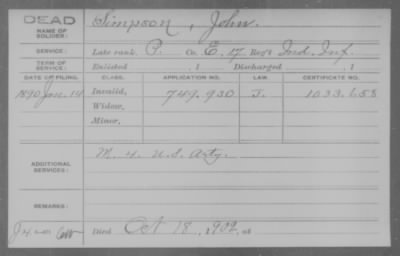 DEAD
NAME OF SOLDIER: Simpson, John.
SERVICE: Late rank, P. Co. E, 17 Reg't Ind. Inf.
TERM OF SERVICE: Enlisted , 1 Discharged , 1
DATE OF FILING. CLASS. APPLICATION NO. LAW. CERTIFICATE NO.
1890 Jan. 14 Invalid, 749.930 J. 1033.658
Widow,
Minor,
ADDITIONAL SERVICES: M. 4. U.S. Arty.
REMARKS:
Died Oct 18, 1902, at